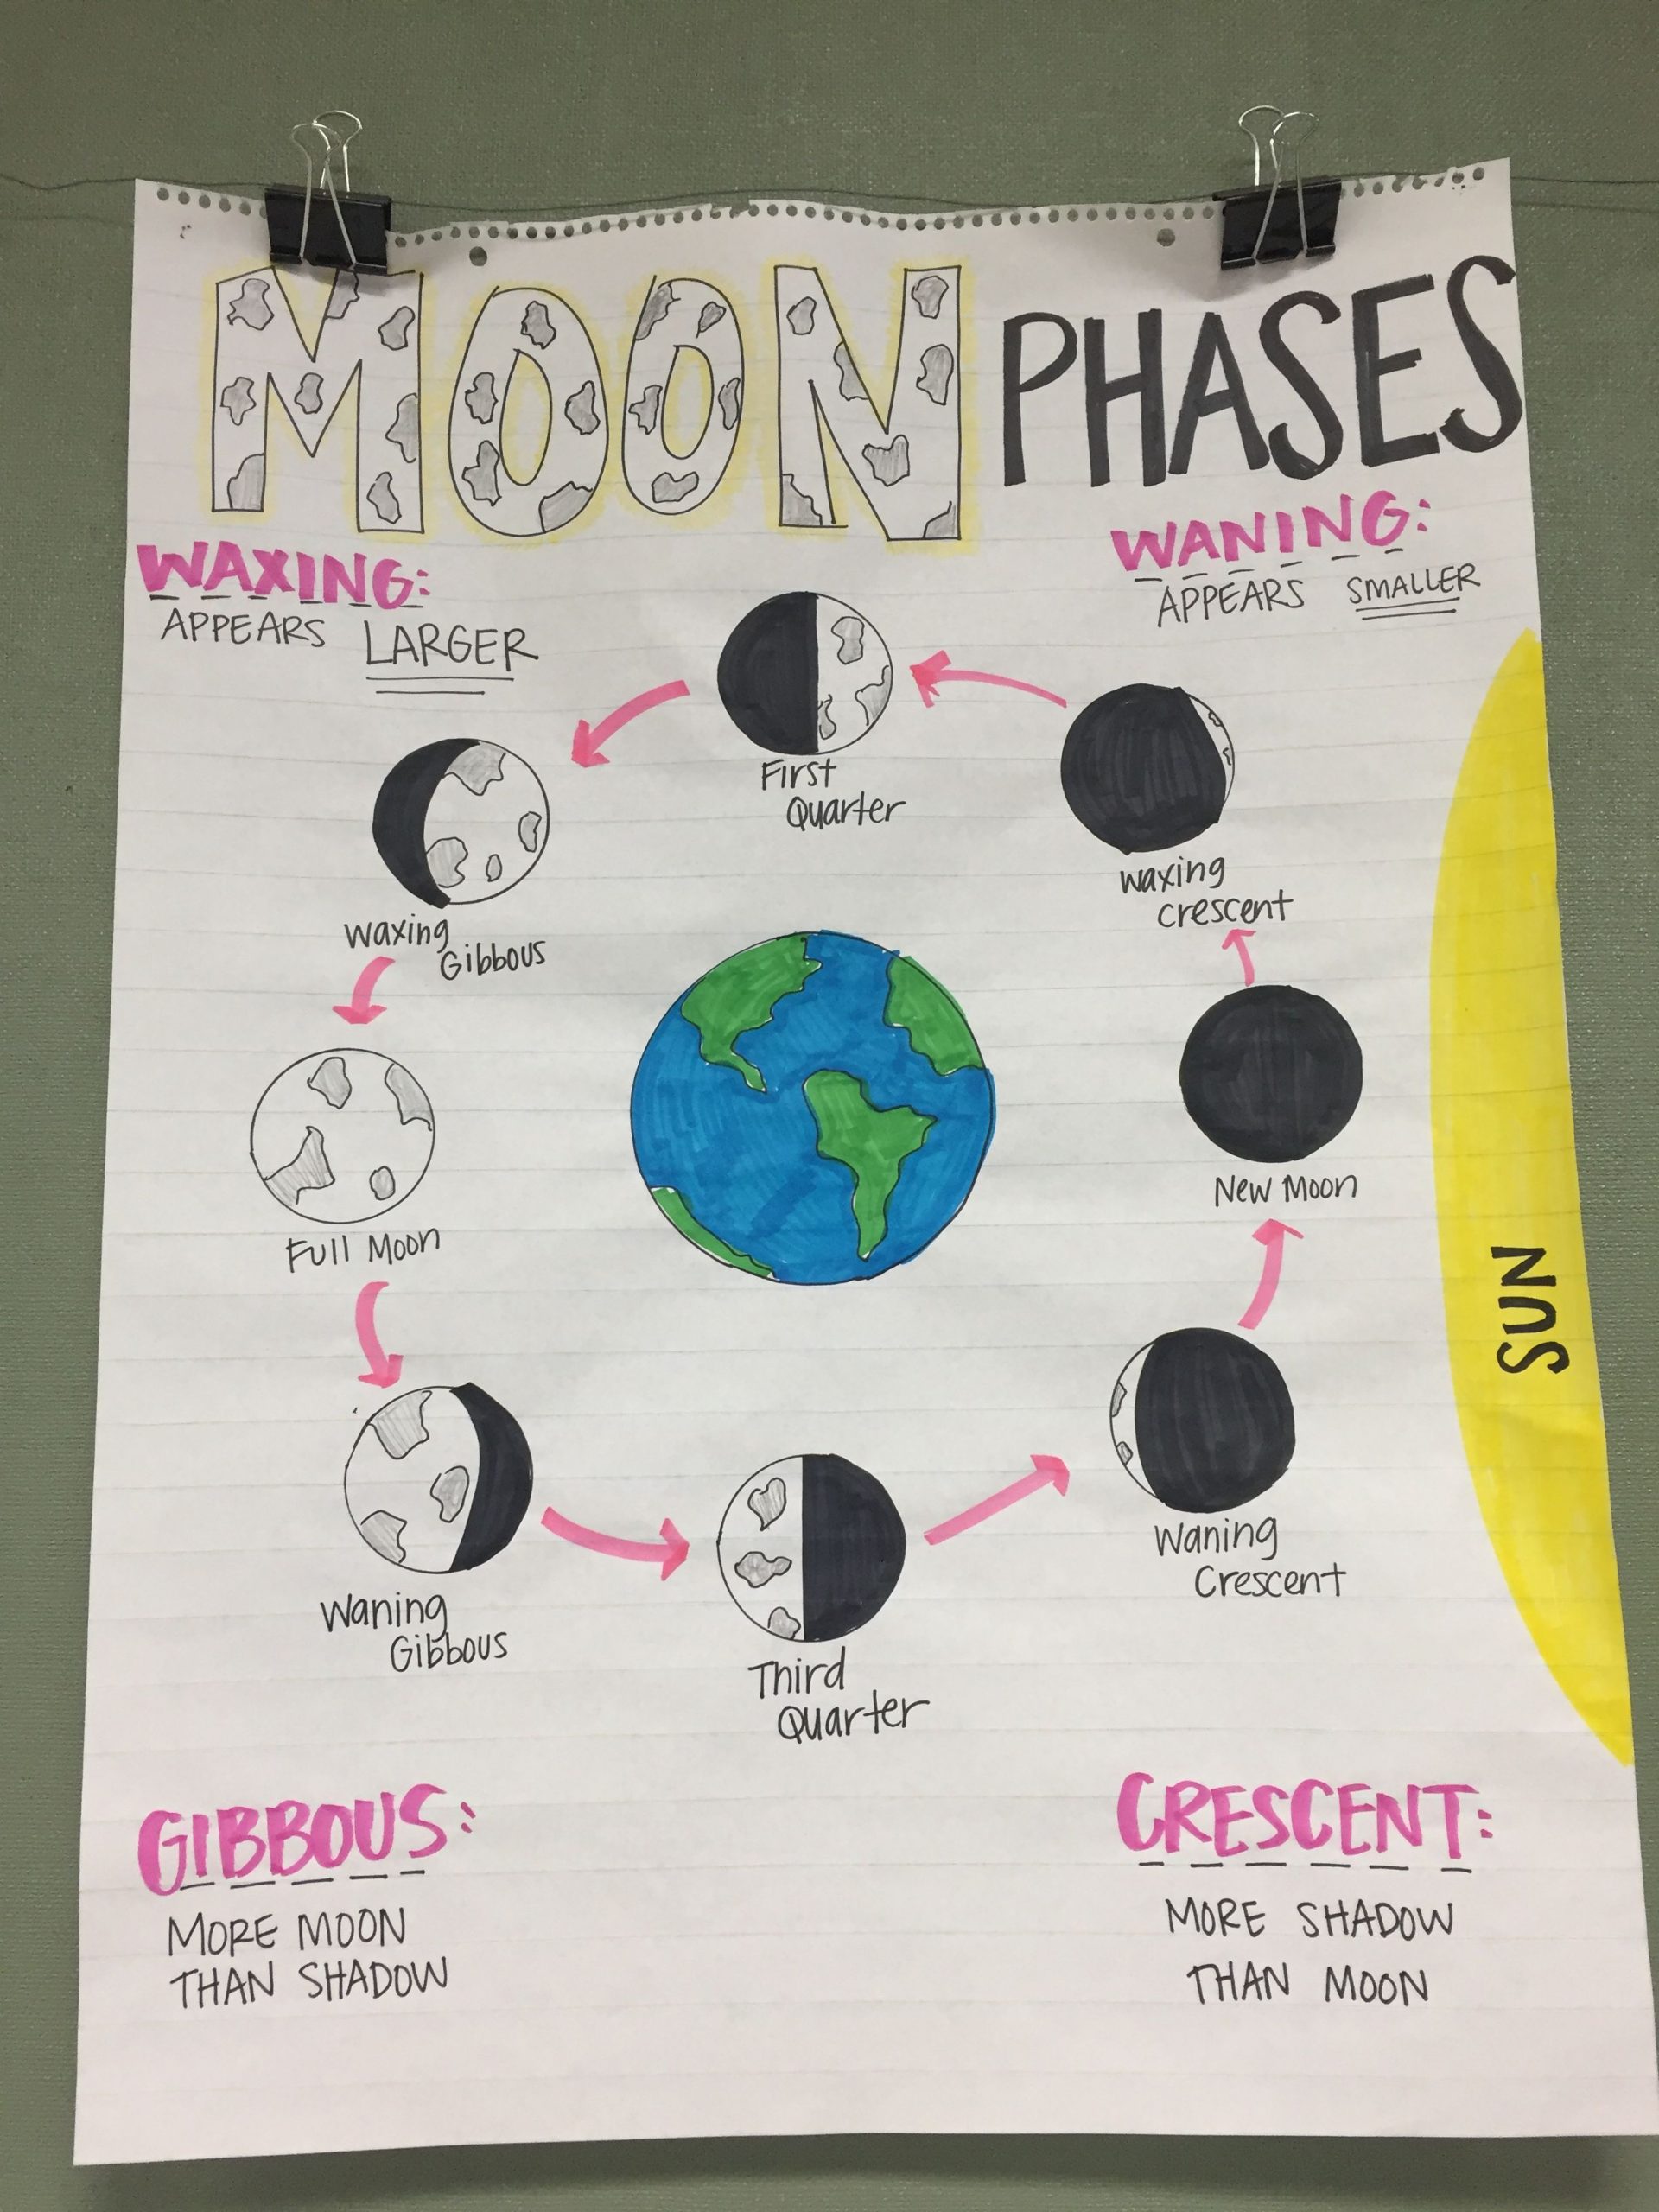 MOON PHASES
WAXING:
APPEARS LARGER
WANING:
APPEARS SMALLER
First
Quarter
Waxing
Crescent
Waxing
Gibbous
New Moon
Full Moon
SUN
Waning
Crescent
Waning
Gibbous
Third
Quarter
GIBBOUS:
MORE MOON
THAN SHADOW
CRESCENT:
MORE SHADOW
THAN MOON